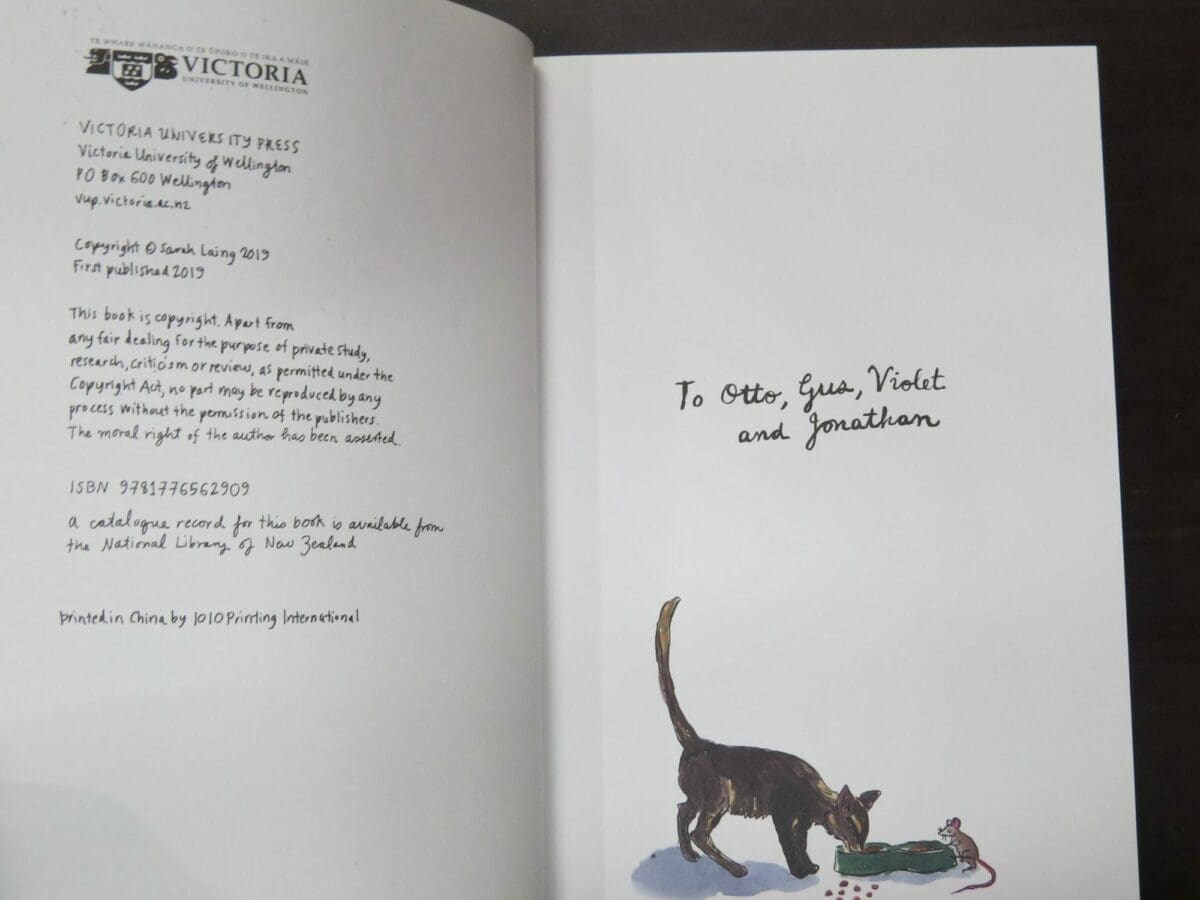 TE WHARE WĀNANGA O TE ŪPOKO O TE IKA A MĀUI
VICTORIA
UNIVERSITY OF WELLINGTON
VICTORIA UNIVERSITY PRESS
Victoria University of Wellington
PO Box 600 Wellington
vup.victoria.ac.nz
Copyright © Sarah Laing 2019
First published 2019
This book is copyright. Apart from
any fair dealing for the purpose of private study,
research, criticism or review, as permitted under the
Copyright Act, no part may be reproduced by any
process without the permission of the publishers.
The moral right of the author has been asserted.
ISBN 9781776562909
a catalogue record for this book is available from
the National Library of New Zealand
printed in China by 1010 Printing International
To Otto, Gus, Violet
and Jonathan